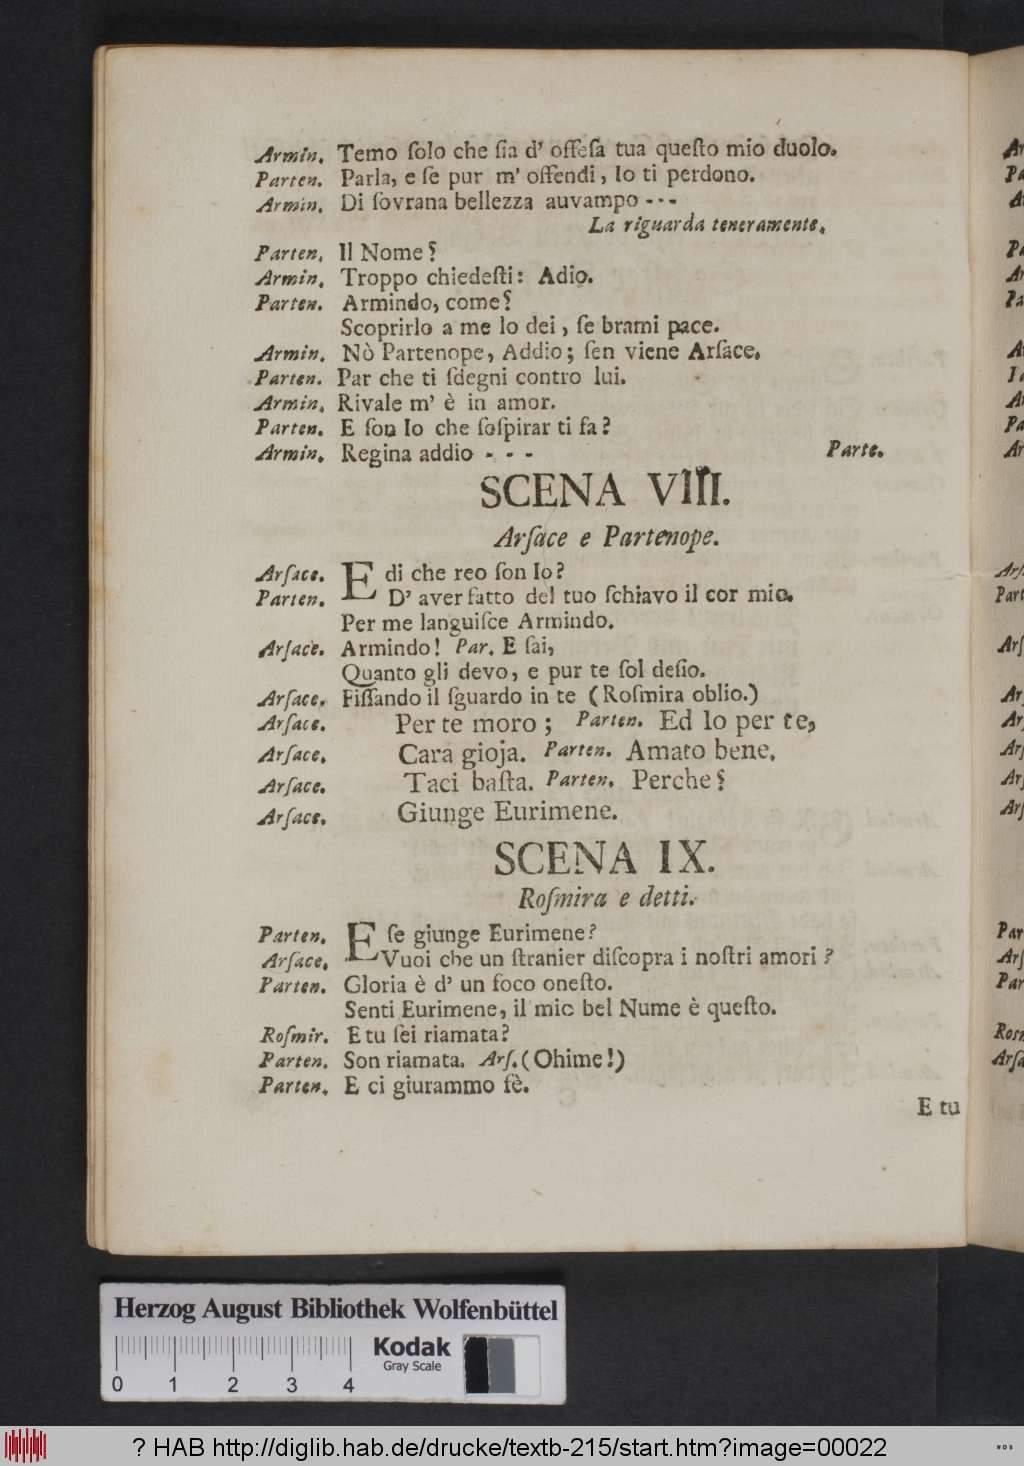 Armin. Temo ſolo che ſia d' offeſa tua queſto mio duolo.
Parten. Parla, e ſe pur m' offendi, Io ti perdono.
Armin. Di ſovrana bellezza auvampo - - -
La riguarda teneramente.
Parten. Il Nome?
Armin. Troppo chiedeſti: Adio.
Parten. Armindo, come?
Scoprirlo a me lo dei, ſe brami pace.
Armin. Nò Partenope, Addio; ſen viene Arſace.
Parten. Par che ti ſdegni contro lui.
Armin. Rivale m' è in amor.
Parten. E ſon Io che ſoſpirar ti fa?
Armin. Regina addio - - - Parte.
SCENA VIII.
Arſace e Partenope.
Arſace. E di che reo ſon Io?
Parten. D' aver fatto del tuo ſchiavo il cor mio.
Per me languiſce Armindo.
Arſace. Armindo! Par. E ſai,
Quanto gli devo, e pur te ſol deſio.
Arſace. Fiſſando il ſguardo in te (Roſmira oblio.)
Arſace. Per te moro; Parten. Ed Io per te,
Arſace. Cara gioja. Parten. Amato bene.
Arſace. Taci baſta. Parten. Perche?
Arſace. Giunge Eurimene.
SCENA IX.
Roſmira e detti.
Parten. E ſe giunge Eurimene?
Arſace. Vuoi che un ſtranier diſcopra i noſtri amori?
Parten. Gloria è d' un foco oneſto.
Senti Eurimene, il mio bel Nume è queſto.
Roſmir. E tu ſei riamata?
Parten. Son riamata. Arſ. (Ohime!)
Parten. E ci giurammo fè.
E tu
Herzog August Bibliothek Wolfenbüttel
Kodak
Gray Scale
0 1 2 3 4
? HAB http://diglib.hab.de/drucke/textb-215/start.htm?image=00022